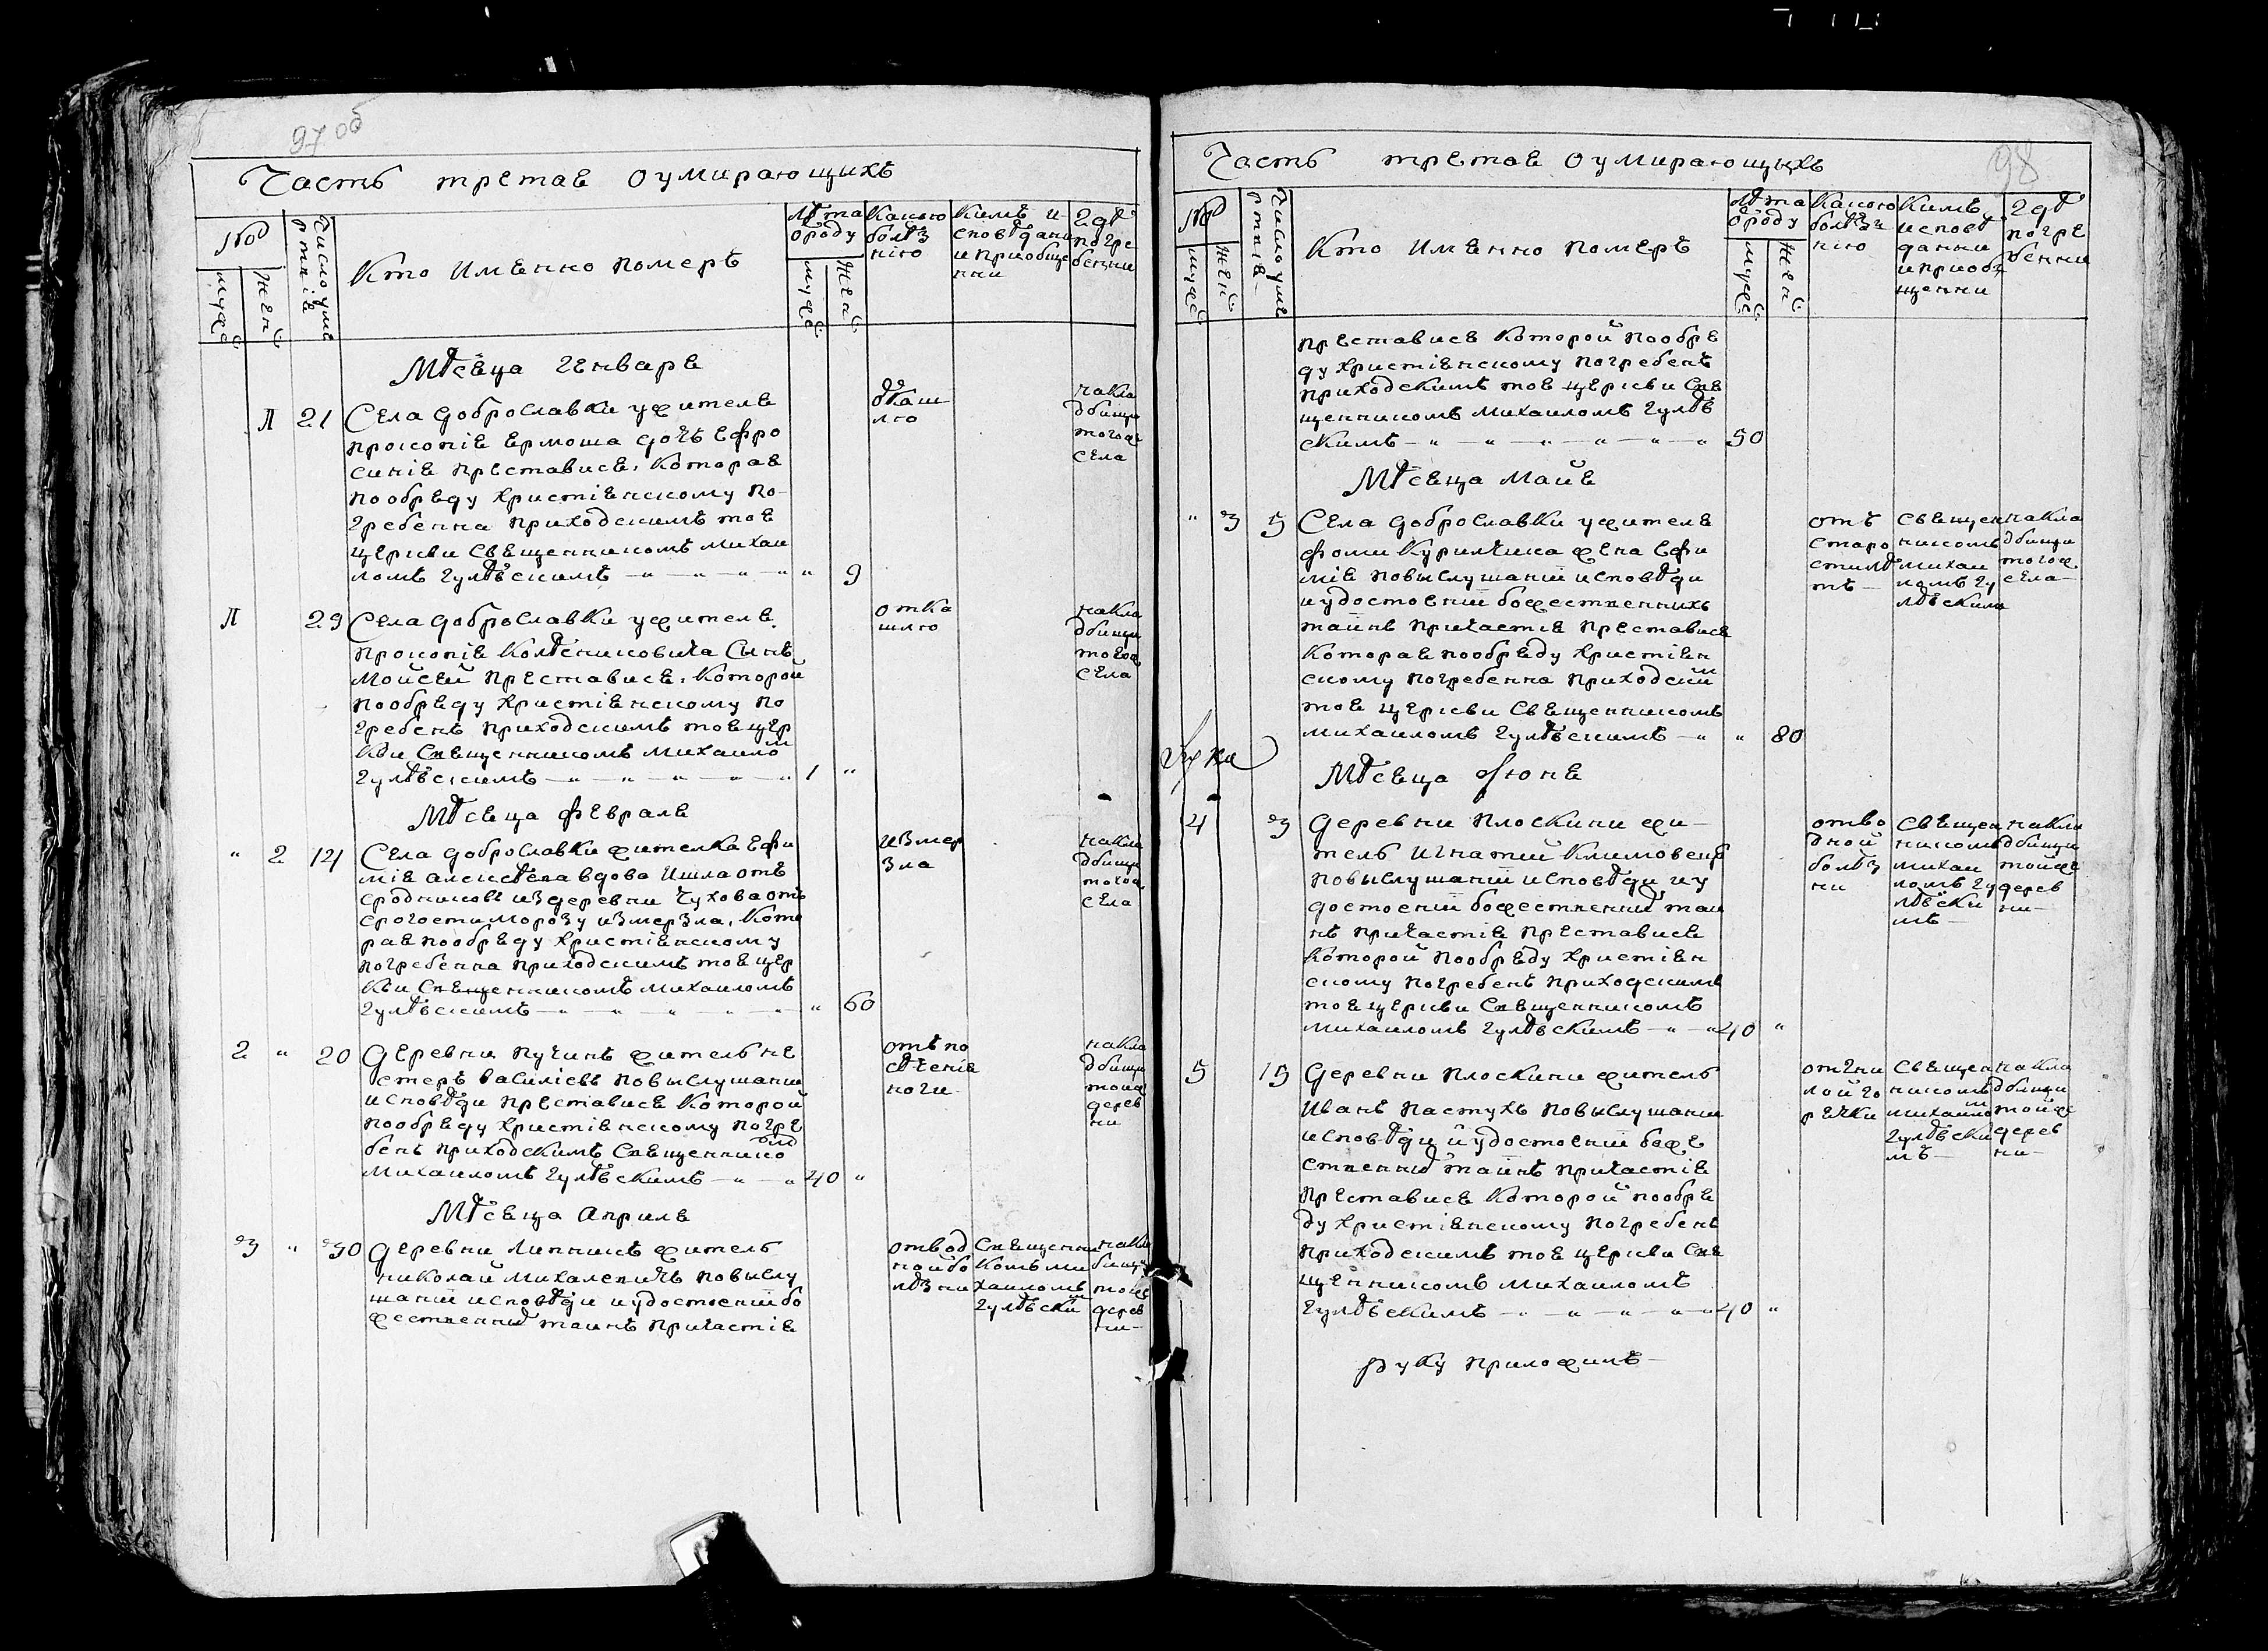 97 об
Часть третая о умирающыхъ
№
мужс
женс
Число умертвія
Кто имѣнно померъ
лѣта
ѿроду
мужс
женс
Какою
болѣз
нію
Кимъ и
споведани
и приобще
нни
Гдѣ
погре
бенни
Мѣсеца Генваря
1 21 Села Доброславки ужителя
Прокопія Ермоша дочъ Ефро
синія преставися: которая
по обряду христіянскому по
гребенна приходскимъ тоя
церкви священникомъ Михаи
ломъ Гулѣвскимъ " 9
ѿ каш
лю
на кла
дбищи
тогож
села
1 29 Села Доброславки ужителя
Прокопія Колѣсниковича сынъ
Мойсей преставися: которой
по обряду христіянскому по
гребенъ приходскимъ тоя цер
кви священникомъ Михаилом
Гулѣвскимъ 1 "
от ка
шлю
на кла
дбищи
тогож
села
Мѣсеца Февраля
" 2 14 Села Доброславки жителка Ефи
мія Алексѣева вдова ишла отъ
сродниковъ из деревни Чухова отъ
срогости морозу измерзла, кото
рая по обряду христіянскому
погребенна приходскимъ тоя цер
кви священникомъ Михаиломъ
Гулѣвскимъ " 60
измер
зла
на кла
дбищи
тогож
села
2 " 20 Деревни Пучинъ житель Не
стеръ Василіевъ по выслушании
исповѣди преставися которой
по обряду христіянскому погре
бенъ приходскимъ священнико
Михаиломъ Гулѣвскимъ 40 "
отъ по
сѣченія
ноги
на кла
дбищи
тойж
дерев
ни
Мѣсеца Априля
3 " 30 Деревни Липникъ житель
Николай Михалевичъ по выслу
шаніи исповѣди и удостоеніи бо
жественных таинъ причастія
от вод
ной бо
лѣзни
священни
комъ Ми
хаиломъ
Гулѣвским
на кла
бищу
тойж
дерев
ни
98
Часть третая о умирающыхъ
№
мужс
женс
Число уме
ртвія
Кто имѣнно померъ
лѣта
ѿроду
мужс
женс
Какою
болѣз
нію
Кимъ
исповѣ
данни
и приоб
щенни
Гдѣ
погре
бенни
преставися которой по обря
ду христіянскому погребенъ
приходскимъ тоя церкви свя
щенникомъ Михаиломъ Гулѣв
скимъ 50
Мѣсеца Майя
" 3 5 Села Доброславки ужителя
Фоми Курилчика жена Ефи
мія по выслушаніи исповѣди
и удостоеніи божественнихъ
таинъ причастія преставися
которая по обряду христіян
скому погребенна приходским
тоя церкви священникомъ
Михаиломъ Гулѣвскимъ " 80
отъ
старо
стилѣ
тъ
священ
никомъ
Михаи
ломъ Гу
лѣвскимъ
на кла
дбищи
тогож
села
Мѣсеца Июня
4 3 Деревни Плоскини жи
тель Игнатий Климовецъ
по выслушаніи исповѣди и у
достоеніи божественних таи
нъ причастія преставися
которой по обряду христіян
скому погребенъ приходскимъ
тоя церкви священникомъ
Михаиломъ Гулѣвскимъ 40 "
от во
дной
болѣз
ни
священ
никомъ
Михаи
ломъ Гу
лѣвски
мъ
на кла
дбищи
тойж
дерев
ни
5 15 Деревни Плоскини житель
Иванъ Пастухъ по выслушании
исповѣди и удостоеніи боже
ственных таинъ причастія
преставися которой по обря
ду христіянскому погребенъ
приходскимъ тоя церкви свя
щенникомъ Михаиломъ
Гулѣвскимъ 40 "
от гни
лой го
рячки
священ
никомъ
Михаилом
Гулѣвски
мъ
на кла
дбищи
тойж
дерев
ни
руку приложилъ